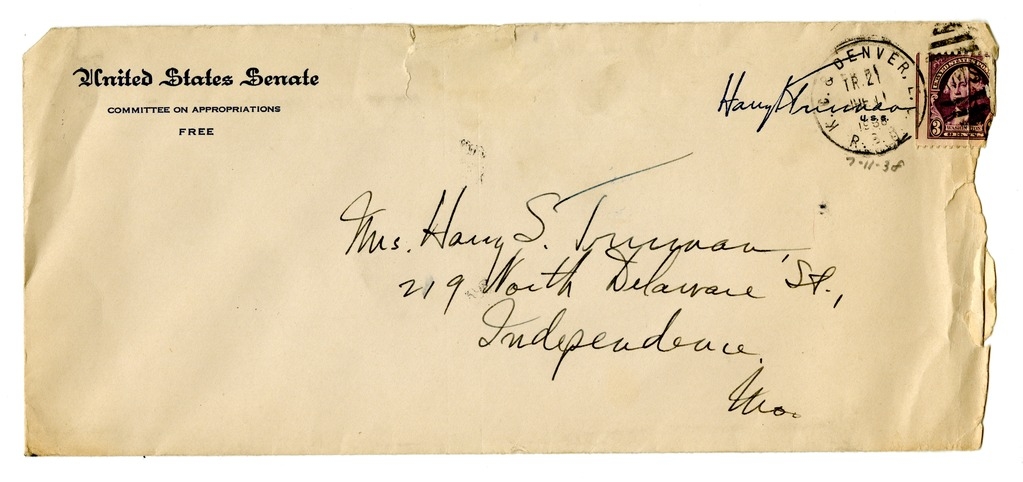 United States Senate
COMMITTEE ON APPROPRIATIONS
FREE
Harry S Truman
U.S.S.
DENVER,
K.C. &
TR.21
JUL 11
1938
R.
3
7-11-38
Mrs. Harry S. Truman,
219 North Delaware St.,
Independence,
Mo.